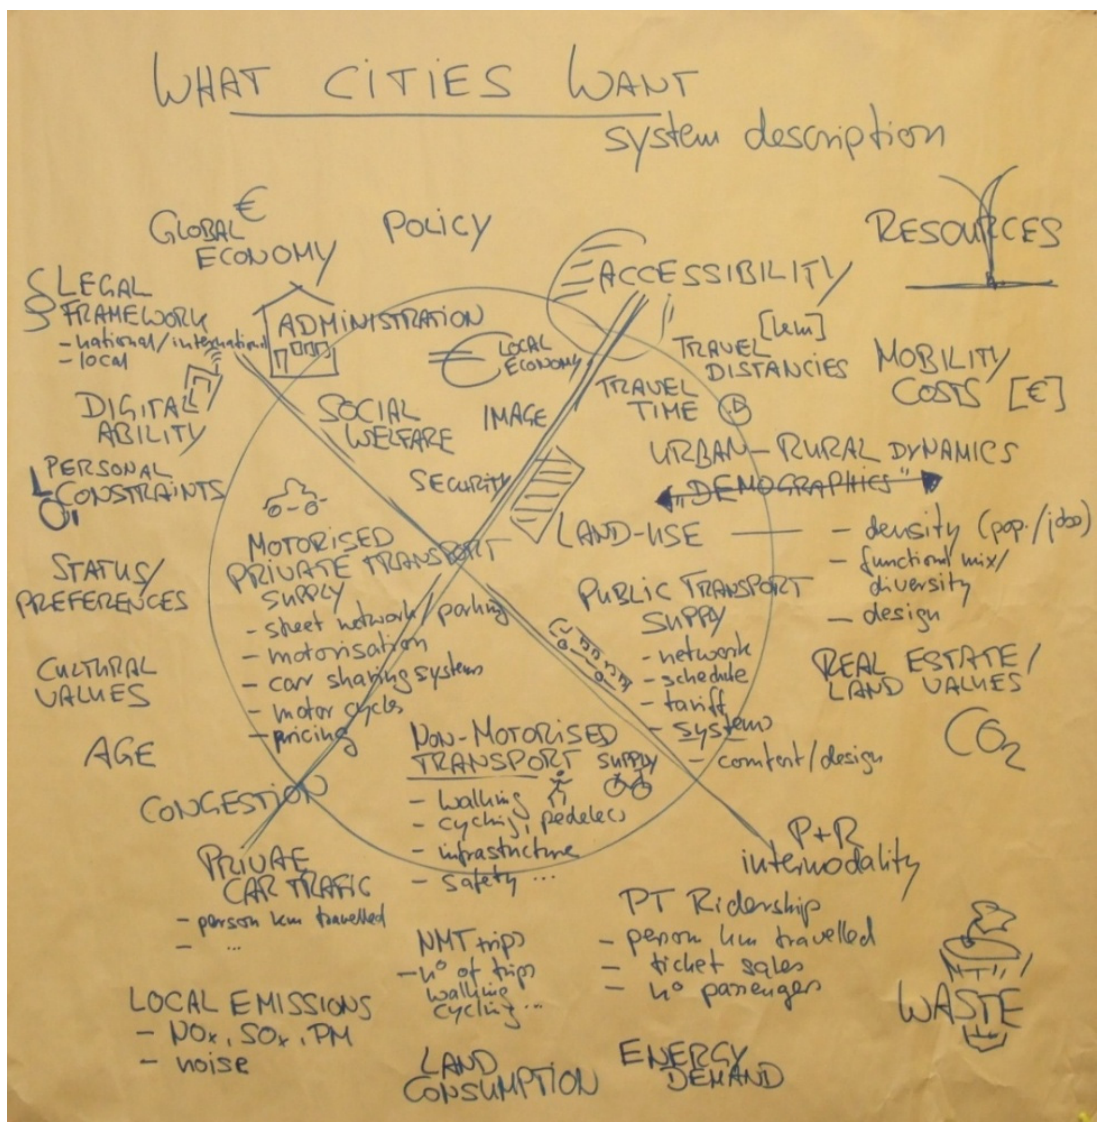 WHAT CITIES WANT
system description
GLOBAL €
ECONOMY
POLICY
ACCESSIBILITY
RESOURCES
§ LEGAL
§ FRAMEWORK
- national/international
- local
ADMINISTRATION
€ LOCAL
ECONOMY
[km]
TRAVEL
DISTANCIES
TRAVEL
TIME
MOBILITY
COSTS [€]
DIGITAL
ABILITY
SOCIAL
WELFARE
IMAGE
SECURITY
URBAN-RURAL DYNAMICS
"DEMOGRAPHICS"
PERSONAL
CONSTRAINTS
LAND-USE
- density (pop./jobs)
- functional mix/
diversity
- design
STATUS/
PREFERENCES
MOTORISED
PRIVATE TRANSPORT
SUPPLY
- street network/parking
- motorisation
- car sharing systems
- motor cycles
- pricing
PUBLIC TRANSPORT
SUPPLY
- network
- schedule
- tariff
- systems
- comfort/design
REAL ESTATE/
LAND VALUES
CULTURAL
VALUES
AGE
CO2
NON-MOTORISED
TRANSPORT SUPPLY
- walking
- cycling, pedelecs
- infrastructure
- safety ...
CONGESTION
PRIVATE
CAR TRAFIC
- person km travelled
- ...
P+R
intermodality
NMT trips
- n° of trips
walking
cycling ...
PT Ridership
- person km travelled
- ticket sales
- n° passengers
WASTE
LOCAL EMISSIONS
- NOx, SOx, PM
- noise
LAND
CONSUMPTION
ENERGY
DEMAND